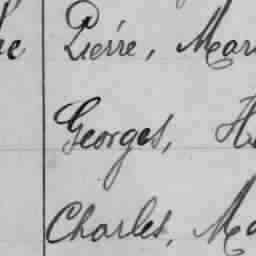 Pierre, Mar
Georges, H
Charles, Ma